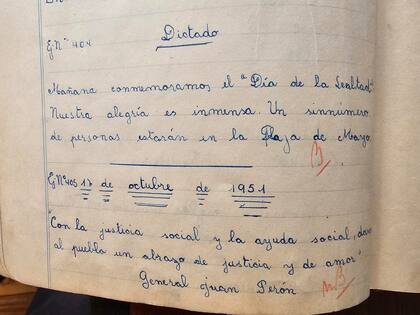 Ej. Nº 404
Dictado
Mañana conmemoramos el "Día de la Lealtad".
Nuestra alegría es inmensa. Un sinnúmero
de personas estarán en la Plaza de Mayo
B
Ej. Nº 405 17 de octubre de 1951
"Con la justicia social y la ayuda social, damos
al pueblo un abrazo de justicia y de amor"
General Juan Perón
mB